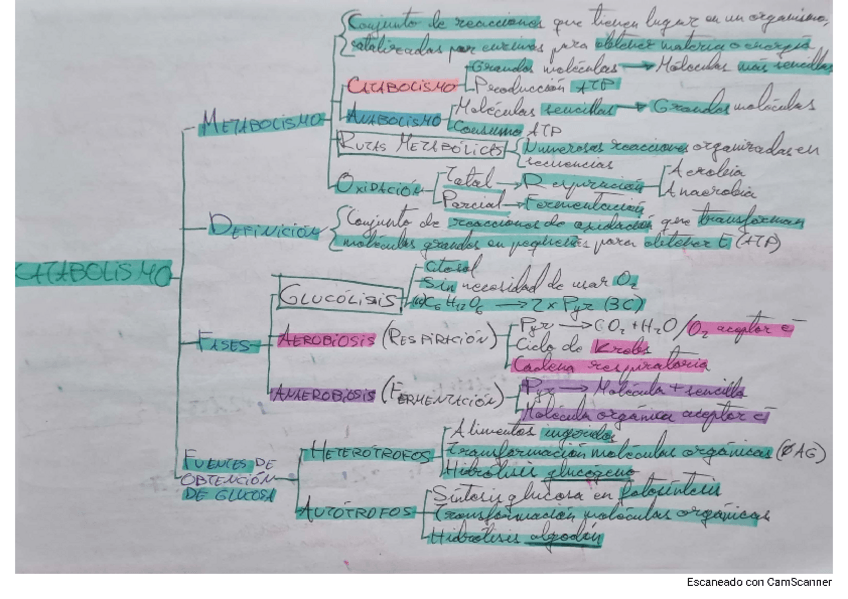 Conjunto de reacciones que tienen lugar en un organismo,
catalizadas por enzimas para obtener materia o energía
CATABOLISMO
Grandes moléculas → Moléculas más sencillas
Producción ATP
METABOLISMO
ANABOLISMO
Moléculas sencillas → Grandes moléculas
Consumo ATP
RUTAS METABÓLICAS
Numerosas reacciones organizadas en
secuencias
OXIDACIÓN
Total → Respiración
Aerobia
Anaerobia
Parcial → Fermentación
DEFINICIÓN
Conjunto de reacciones de oxidación que transforman
moléculas grandes en pequeñas para obtener E (ATP)
CATABOLISMO
FASES
GLUCÓLISIS
Citosol
Sin necesidad de usar O₂
C₆H₁₂O₆ → 2x Pyr (3C)
AEROBIOSIS (RESPIRACIÓN)
Pyr → CO₂ + H₂O / O₂ aceptor e⁻
Ciclo de Krebs
Cadena respiratoria
ANAEROBIOSIS (FERMENTACIÓN)
Pyr → Molécula + sencilla
Molécula orgánica aceptor e⁻
FUENTES DE
OBTENCIÓN
DE GLUCOSA
HETERÓTROFOS
Alimentos ingeridos
Transformación moléculas orgánicas (ØAG)
Hidrólisis glucógeno
AUTÓTROFOS
Síntesis glucosa en fotosíntesis
Transformación moléculas orgánicas
Hidrólisis algodón
Escaneado con CamScanner